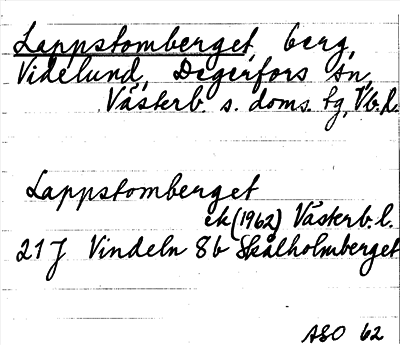 Lappstomberget, berg,
Videlund, Degerfors sn,
Västerb. s. doms. tg, Vb. l.
Lappstomberget
ek (1962) Västerb. l.
21 J Vindeln 8b Skålholmberget
ASO 62